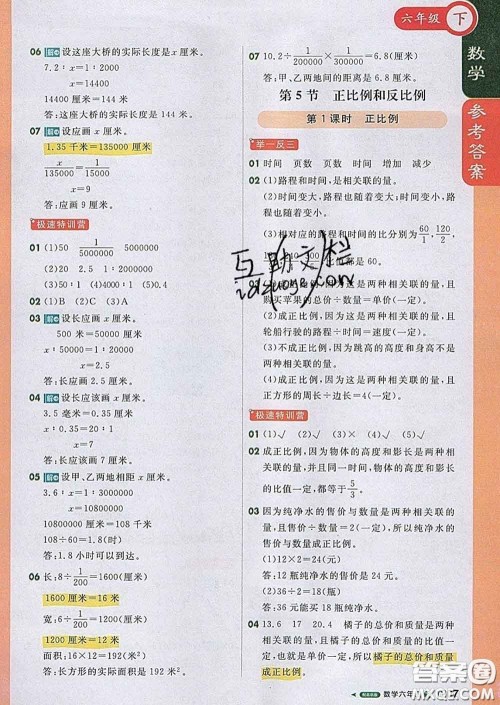 六年级 下
数学
参考答案
06 解 设这座大桥的实际长度是 x 厘米。
7.2∶x=1∶2000
x=14400
14400 厘米=144 米
答:这座大桥的实际长度是 144 米。
07 解 设应画 x 厘米。
1.35 千米=135000 厘米
x/135000=1/15000
x=9
答:应画 9 厘米。
极速特训营
01 (1)50 1/5000000 5000000
(2)20 2.5 1∶2000000
(3)50∶1 (4)4000∶1 (5)1
02 (1)B (2)C (3)A
03 解 设长应画 x 厘米。
500 米=50000 厘米
x∶50000=1∶20000
x=2.5
答:长应画 2.5 厘米。
04 解 设长应该画 x 厘米。
3.5 毫米=0.35 厘米
x∶0.35=20∶1
x=7
答:长应该画 7 厘米。
05 解 设甲、乙两地相距 x 厘米。
3.6∶x=1∶3000000
x=10800000
10800000 厘米=108 千米
108÷60=1.8(小时)
答:1.8 小时可以到达。
06 长:8÷1/200=1600(厘米)
1600 厘米=16 米
宽:6÷1/200=1200(厘米)
1200 厘米=12 米
面积:16×12=192(米²)
答:长方形的实际面积是 192 米²。
07 10.2÷1/200000×1/300000=6.8(厘米)
答:甲、乙两地间的距离是 6.8 厘米。
第 5 节 正比例和反比例
第 1 课时 正比例
举一反三
01 时间 页数 页数 时间 增加 减少
02 (1)路程和时间,是相关联的量。
(2)时间变大,路程也随着变大;时间变小,路程也随着变小。
(3)相对应的路程和时间的比分别为60/1,120/2,
比值都是
购买苹果的总价÷数量=单价(一定)。
轮船行驶的路程÷时间=速度(一定)。
(3)不成正比例,因为跳高的高度和身高不是两种相关联的量。
(4)成正比例,因为这是两种相关联的量,且正方形的周长÷边长=4(一定)。
极速特训营
01 (1)√ (2)√ (3)× (4)√ (5)√
02 成正比例,因为物体的高度和影长是两种相关联的量,并且物体的高度和影长的比值一定,都等于5/3。
03 因为纯净水的售价与数量是两种相关联的量,且售价÷数量=2(一定),所以纯净水的售价与数量成正比例。
(1)12×2=24(元)
答:12 瓶纯净水的售价是 24 元。
(2)36÷2=18(瓶)
答:36 元能买 18 瓶纯净水。
04 13.6 17 20.4 橘子的总价和质量是两种相关联的量,且橘子的总价和质量的比值一定,也就是单价一定,所以橘子的总价和质量成正比例。
互助文档
数学六年
答案圈